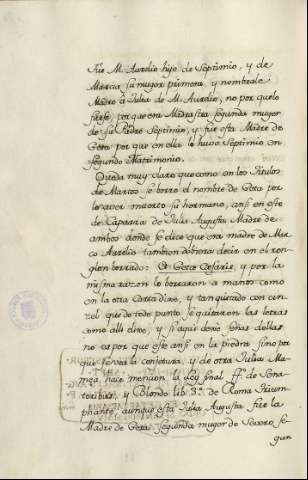 Fue M. Aurelio hijo de Septimio, y de
Marcia su muger primera, y nombrale
Madre à Julia de M. Aurelio, no por que lo
fuese, por que era Madrastra segunda muger
de su Padre Septimio, y fue esta Madre de
Geta por que en ella lo huvo Septimio en
segundo Matrimonio.
Queda muy claro que como en los Titulos
de Martos se borro el nombre de Geta por
lo aver muerto su hermano, ansi en este
de Caparra de Julia Augusta Madre de
ambos donde se dice que era madre de Mar
co Aurelio tambien debiera decir en el ren
glon borrado: Et Getæ Cesaris, y por la
misma razon lo borraron a manos como
en la otra Carta dixe, y tan quitado con cin
zel que de todo punto se quitaron las letras
como alli dixe, y si aqui doxe señas dellas
no es por que este ansi en la piedra sino por
que se vea la conjetura, y de otra Julia Ma-
mea hace mencion la Ley final ff. de Sena-
toribus, y Blondo lib. 3.º de Roma trium-
phante, aunque esta Julia Augusta fue la
Madre de Geta segunda muger de Severo se
gun